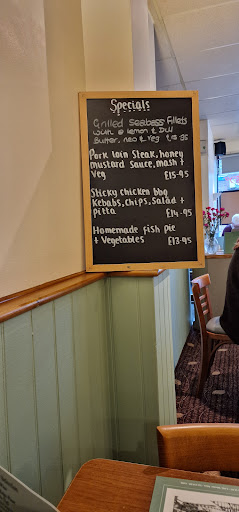 Specials
Grilled Seabass Fillets
with a lemon & Dill
Butter, neo & Veg £15.95
Pork loin Steak, honey
mustard Sauce, mash +
Veg £15.95
Sticky chicken bbq
Kebabs, Chips, Salad +
pitta £14.95
Homemade fish pie
+ Vegetables £13.95